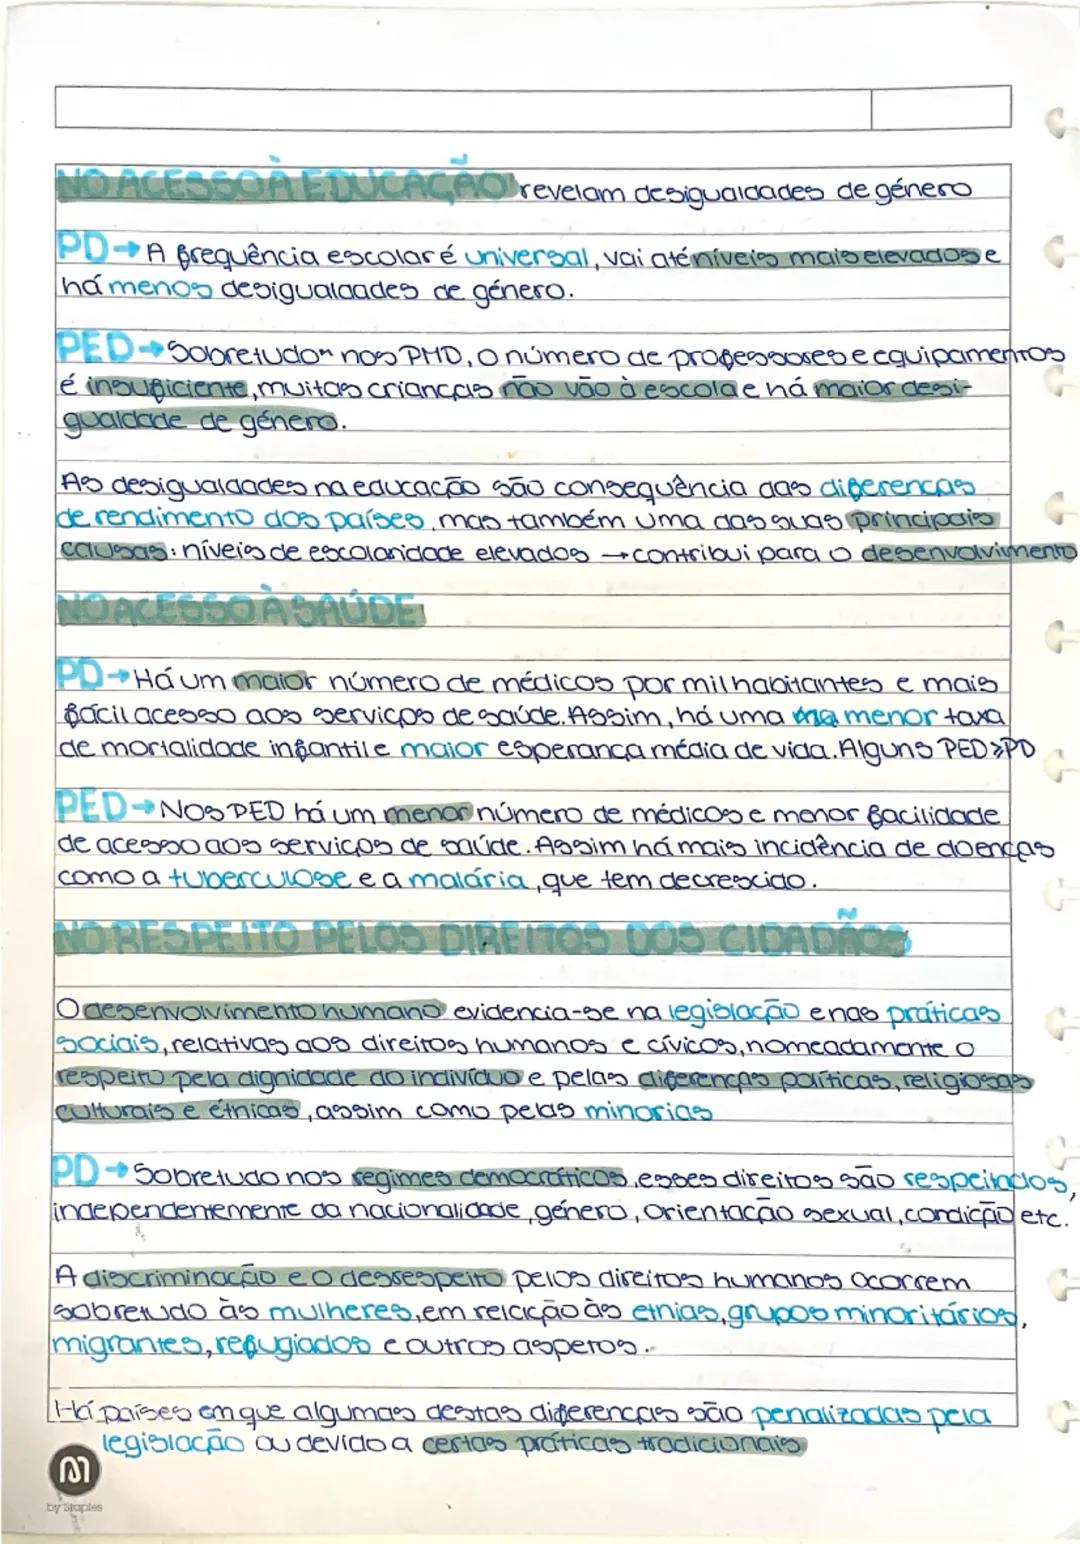 NO ACESSO À EDUCAÇÃO revelam desigualdades de género
PD→ A frequência escolar é universal, vai até níveis mais elevados e
há menos desigualdades de género.
PED→ Sobretudo nos PMD, o número de professores e equipamentos
é insuficiente, muitas crianças não vão à escola e há maior desi-
gualdade de género.
As desigualdades na educação são consequência das diferenças
de rendimento dos países, mas também uma das suas principais
causas: níveis de escolaridade elevados → contribui para o desenvolvimento
NO ACESSO À SAÚDE
PD→ Há um maior número de médicos por mil habitantes e mais
fácil acesso aos serviços de saúde. Assim, há uma menor taxa
de mortalidade infantil e maior esperança média de vida. Alguns PED≥PD
PED→ Nos PED há um menor número de médicos e menor facilidade
de acesso aos serviços de saúde. Assim há mais incidência de doenças
como a tuberculose e a malária, que tem decrescido.
NO RESPEITO PELOS DIREITOS DOS CIDADÃOS
O desenvolvimento humano evidencia-se na legislação e nas práticas
sociais, relativas aos direitos humanos e cívicos, nomeadamente o
respeito pela dignidade do indivíduo e pelas diferenças políticas, religiosas
culturais e étnicas, assim como pelas minorias
PD→ Sobretudo nos regimes democráticos, esses direitos são respeitados,
independentemente da nacionalidade, género, orientação sexual, condição etc.
A discriminação e o desrespeito pelos direitos humanos ocorrem
sobretudo às mulheres, em relação às etnias, grupos minoritários,
migrantes, refugiados e outros aspetos.
Há países em que algumas destas diferenças são penalizadas pela
legislação ou devido a certas práticas tradicionais
M
by Staples